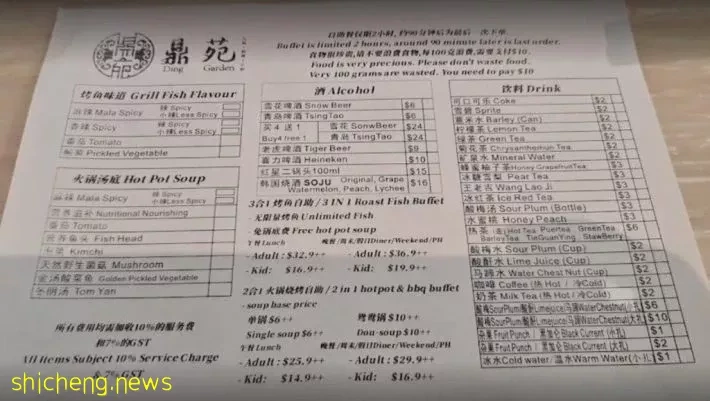 鼎苑
Ding Garden
自助餐仅限2小时, 约90分钟后为最后一次下单.
Buffet is limited 2 hours, around 90 minute later is last order.
食物很珍贵, 请不要浪费食物, 每100克浪费, 需要支付$10.
Food is very precious. Please don't waste food.
Very 100 grams are wasted. You need to pay $10
烤鱼味道 Grill Fish Flavour
麻辣 Mala Spicy 辣 Spicy
小辣 Less Spicy
香辣 Spicy 辣 Spicy
小辣 Less Spicy
番茄 Tomato
Pickled Vegetable
火锅汤底 Hot Pot Soup
麻辣 Mala Spicy 辣 Spicy
小辣 Less Spicy
营养滋补 Nutritional Nourishing
番茄 Tomato
营养鱼头 Fish Head
Kimchi
天然野生菌菇 Mushroom
金汤酸菜鱼 Golden Pickled Vegetable
冬阴汤 Tom Yan
所有费用均需加收10%的服务费
和7%的GST
All Items Subject 10% Service Charge
& 7% GST
酒 Alcohol
雪花啤酒 Snow Beer $6
青岛啤酒 TsingTao $6
买 4 送 1 雪花 SonwBeer $24
Buy4 free 1 青岛 TsingTao $24
老虎啤酒 Tiger Beer $9
喜力啤酒 Heineken $10
红星二锅头100ml $15
韩国烧酒 SOJU Original, Grape $16
Watermelon, Peach, Lychee
3合1 烤鱼自助 / 3 IN 1 Roast Fish Buffet
无限量烤鱼 Unlimited Fish
免锅底费 Free hot pot soup
午餐 Lunch 晚餐/周末/假日Diner/Weekend/PH
- Adult : $32.9++ - Adult : $36.9++
- Kid: $16.9++ - Kid: $19.9++
2合1 火锅烧烤自助 / 2 in 1 hotpot & bbq buffet
- soup base price
单锅 $6++ 鸳鸯锅 $10++
Single soup $6++ Dou-soup $10++
午餐 Lunch 晚餐/周末/假日Diner/Weekend/PH
- Adult : $25.9++ - Adult : $29.9++
- Kid: $14.9++ - Kid: $16.9++
饮料 Drink
可口可乐 Coke $2
雪碧 Sprite $2
薏米水 Barley (Can) $2
柠檬茶 Lemon Tea $2
绿茶 Green Tea $2
菊花茶 Chrysanthemun Tea $2
矿泉水 Mineral Water $2
蜂蜜柚子茶 Honey GrapefruitTea $3
冰糖雪梨 Pear Tea $3
王老吉 Wang Lao Ji $3
冰红茶 Ice Red Tea $3
酸梅汤 Sour Plum (Bottle) $3
水蜜桃 Honey Peach $3
热茶 (壶)(Hot)Tea Puertea GreenTea $6
BarleyTea TieGuanYing StawBerry
酸梅水 Sour Plum (Cup) $2
酸酣水 Lime Juice (Cup) $2
马蹄水 Water Chest Nut (Cup) $2
咖啡 Coffee (热Hot / 冷Cold) $2
奶茶 Milk Tea (热 Hot / 冷Cold) $2
酸梅SourPlum/酸酣Limejuice/马蹄WaterChestnut(小扎) $6
酸梅SourPlum/酸酣Limejuice/马蹄WaterChestnut(大扎) $10
杂果 Fruit Punch / 黑加仑 Black Current (小扎) $1
杂果 Fruit Punch / 黑加仑 Black Current (大扎) $2
冰水Cold water/温水Warm Water(小扎) $1
shicheng.news